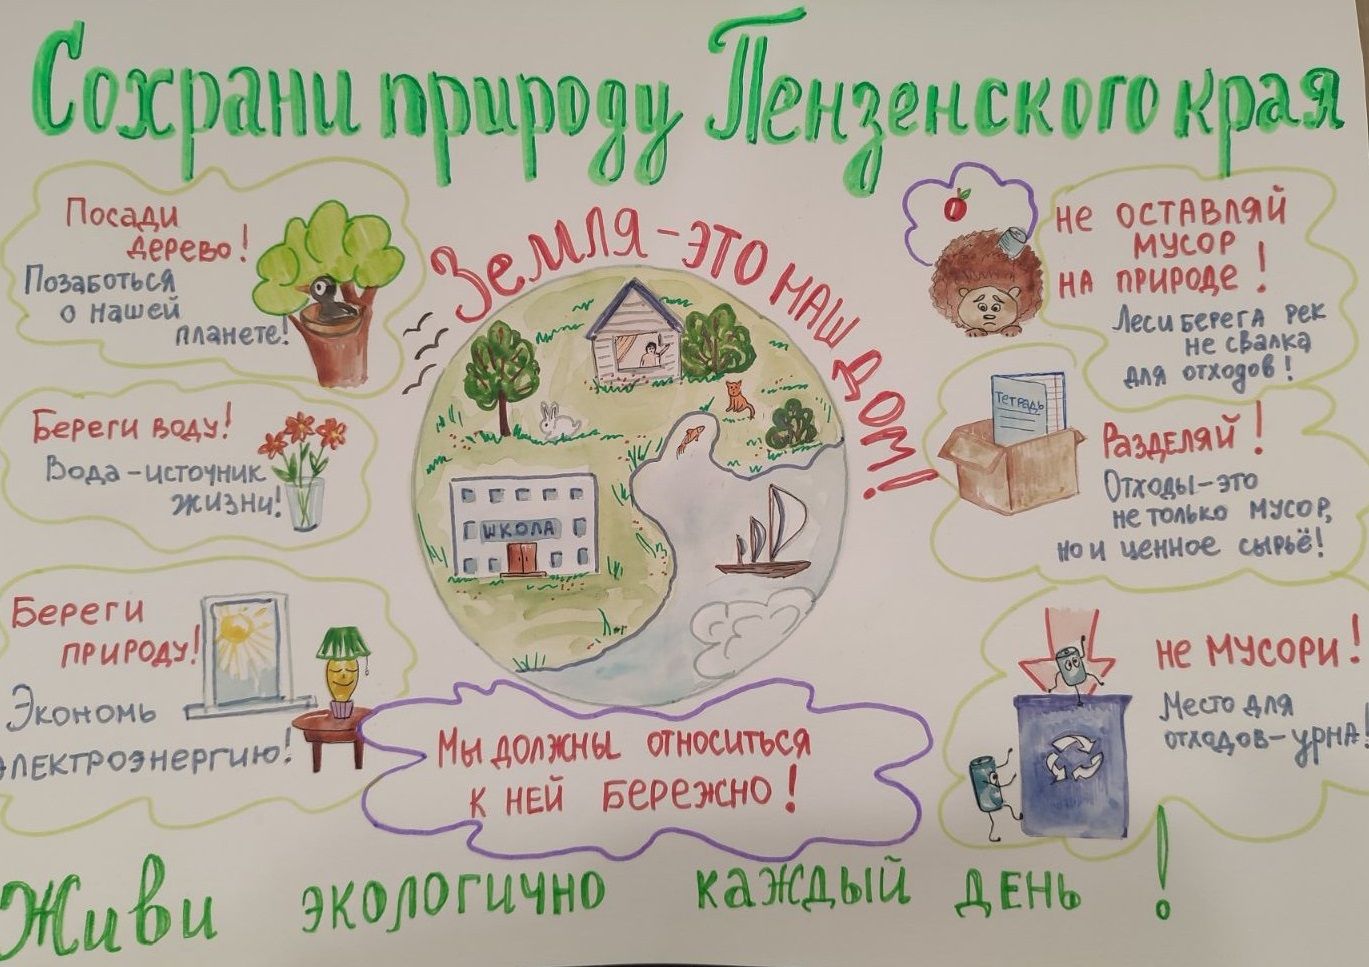 Сохрани природу Пензенского края
Посади
дерево!
Позаботься
о нашей
планете!
Береги воду!
Вода - источник
жизни!
Береги
природу!
Экономь
электроэнергию!
Земля - это наш дом!
ШКОЛА
Мы должны относиться
к ней бережно!
не оставляй
мусор
на природе!
Леса и берега рек
не свалка
для отходов!
Тетрадь
Разделяй!
Отходы - это
не только мусор,
но и ценное сырьё!
не мусори!
Место для
отходов - урна!
Живи экологично каждый день!